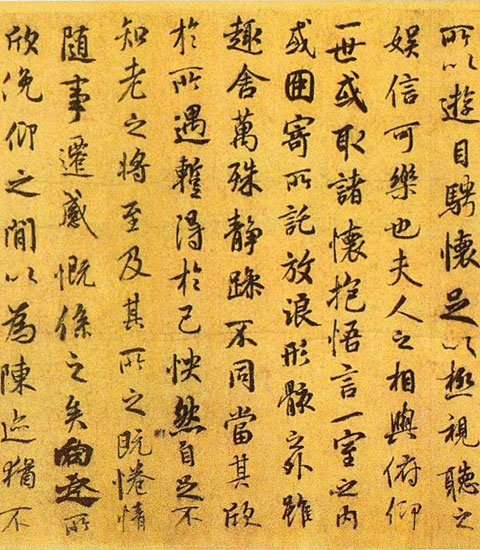 所以遊目騁懷足以極視聽之
娛信可樂也夫人之相與俯仰
一世或取諸懷抱悟言一室之內
或因寄所託放浪形骸之外雖
趣舍萬殊静躁不同當其欣
於所遇蹔得於己怏然自足不
知老之將至及其所之既惓情
隨事遷感慨係之矣向之所
欣俛仰之閒以為陳迹猶不